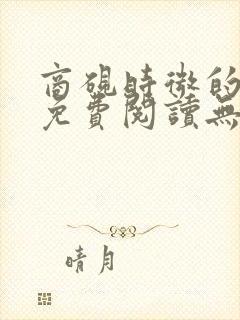 商硯時微的
免費閱讀無
晴月